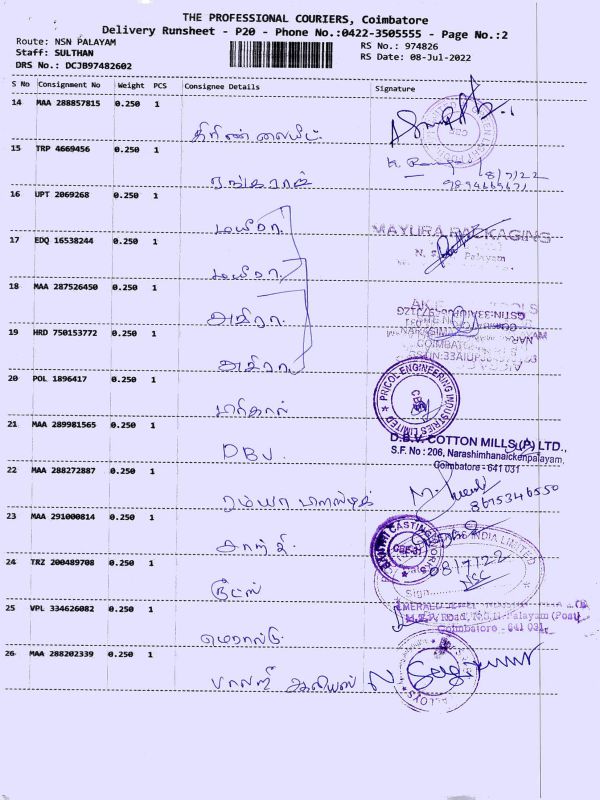 THE PROFESSIONAL COURIERS, Coimbatore
Delivery Runsheet - P20 - Phone No.:0422-3505555 - Page No.:2
Route: NSN PALAYAM
RS No.: 974826
Staff: SULTHAN
RS Date: 08-Jul-2022
DRS No.: DCJB97482602
S No Consignment No Weight PCS Consignee Details Signature
14 MAA 288857815 0.250 1
15 TRP 4669456 0.250 1
8/7/22
ரங்கராஜ்
16 UPT 2069268 0.250 1
மயூரா.
MAYURA PACKAGING
17 EDQ 16538244 0.250 1
Palayam
மயூரா.
18 MAA 287526450 0.250 1
அதிரா.
19 HRD 750153772 0.250 1
அதிரா.
20 POL 1896417 0.250 1
PRICOL ENGINEERING INDUSTRIES LIMITED
21 MAA 289981565 0.250 1
DBV.
D.B.V. COTTON MILLS (P) LTD.,
S.F. No : 206, Narashimhanaickenpalayam,
Coimbatore - 641 031
22 MAA 288272887 0.250 1
8675346550
23 MAA 291000814 0.250 1
INDIA LIMITED
08/7/22
24 TRZ 200489708 0.250 1
Sign
25 VPL 334626082 0.250 1
EMERALD
Coimbatore - 641 031
எமரால்டு
26 MAA 288202339 0.250 1
ALLOYS